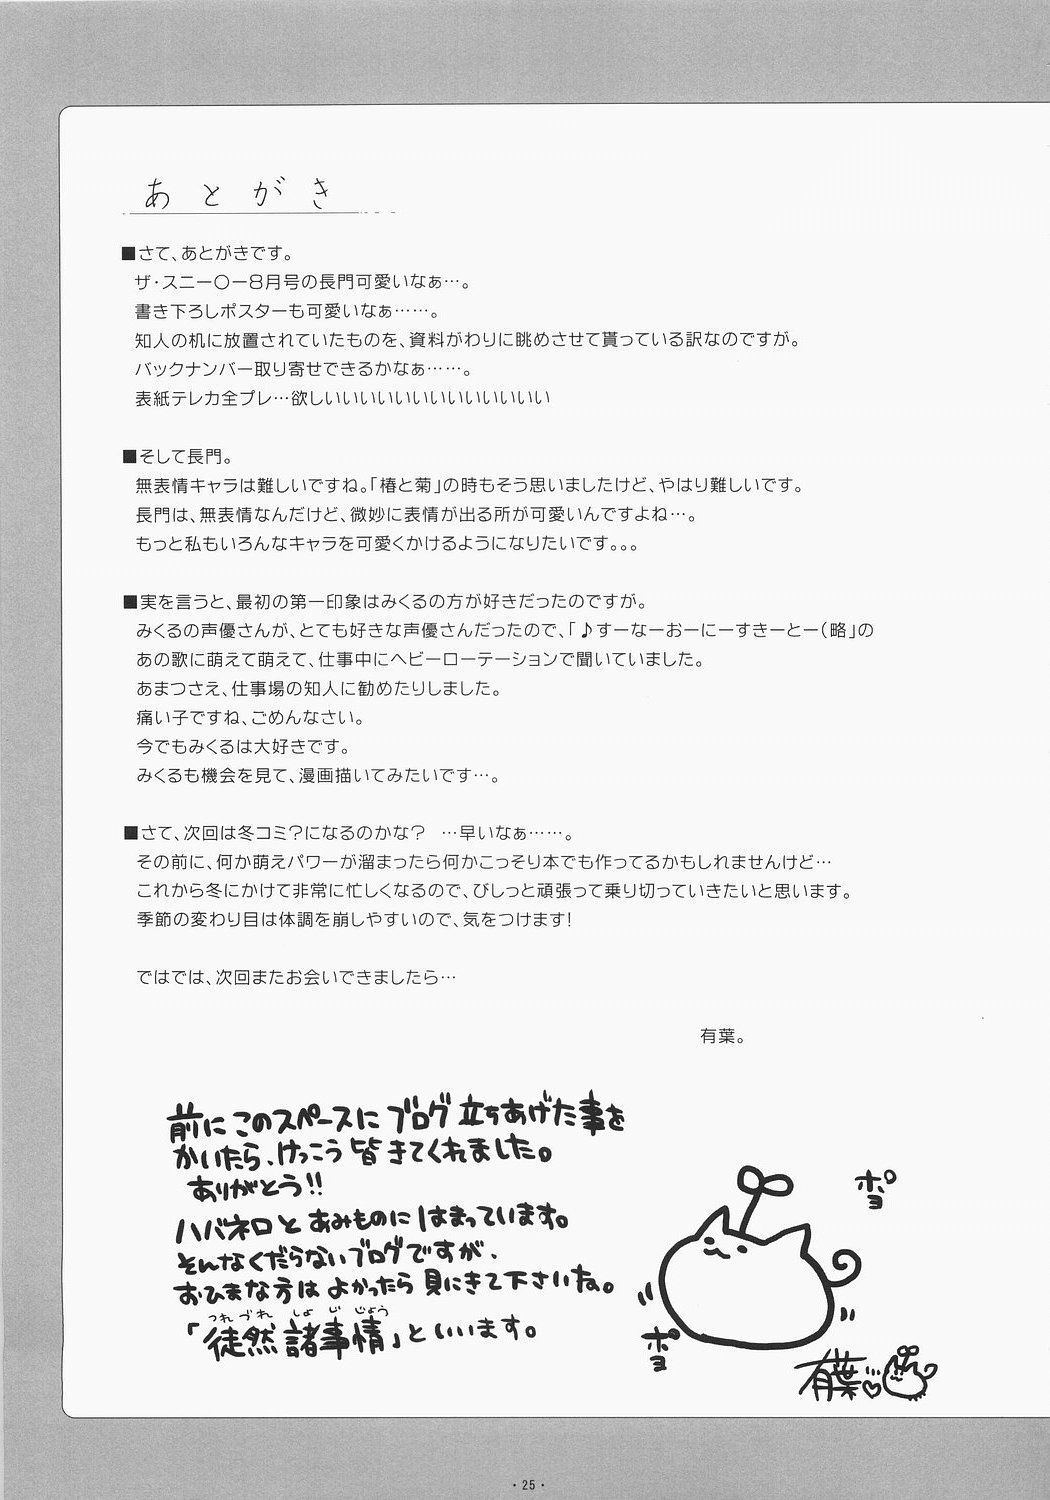 あとがき
■さて、あとがきです。
ザ・スニー〇ー8月号の長門可愛いなぁ…。
書き下ろしポスターも可愛いなぁ……。
知人の机に放置されていたものを、資料がわりに眺めさせて貰っている訳なのですが。
バックナンバー取り寄せできるかなぁ……。
表紙テレカ全プレ…欲しいいいいいいいいいいいい
■そして長門。
無表情キャラは難しいですね。「椿と菊」の時もそう思いましたけど、やはり難しいです。
長門は、無表情なんだけど、微妙に表情が出る所が可愛いんですよね…。
もっと私もいろんなキャラを可愛くかけるようになりたいです。。。
■実を言うと、最初の第一印象はみくるの方が好きだったのですが。
みくるの声優さんが、とても好きな声優さんだったので、「♪すーなーおーにーすきーとー（略」の
あの歌に萌えて萌えて、仕事中にヘビーローテーションで聞いていました。
あまつさえ、仕事場の知人に勧めたりしました。
痛い子ですね、ごめんなさい。
今でもみくるは大好きです。
みくるも機会を見て、漫画描いてみたいです…。
■さて、次回は冬コミ？になるのかな？　…早いなぁ……。
その前に、何か萌えパワーが溜まったら何かこっそり本でも作ってるかもしれませんけど…
これから冬にかけて非常に忙しくなるので、びしっと頑張って乗り切っていきたいと思います。
季節の変わり目は体調を崩しやすいので、気をつけます！
ではでは、次回またお会いできましたら…
有葉。
前にこのスペースにブログ立ちあげた事を
かいたら、けっこう皆きてくれました。
ありがとう!!
ハバネロとあみものにはまっています。
そんなくだらないブログですが、
おひまな方はよかったら見にきて下さいね。
つれづれ しょじじょう
「徒然諸事情」といいます。
ポヨ
ポヨ
有葉
・25・